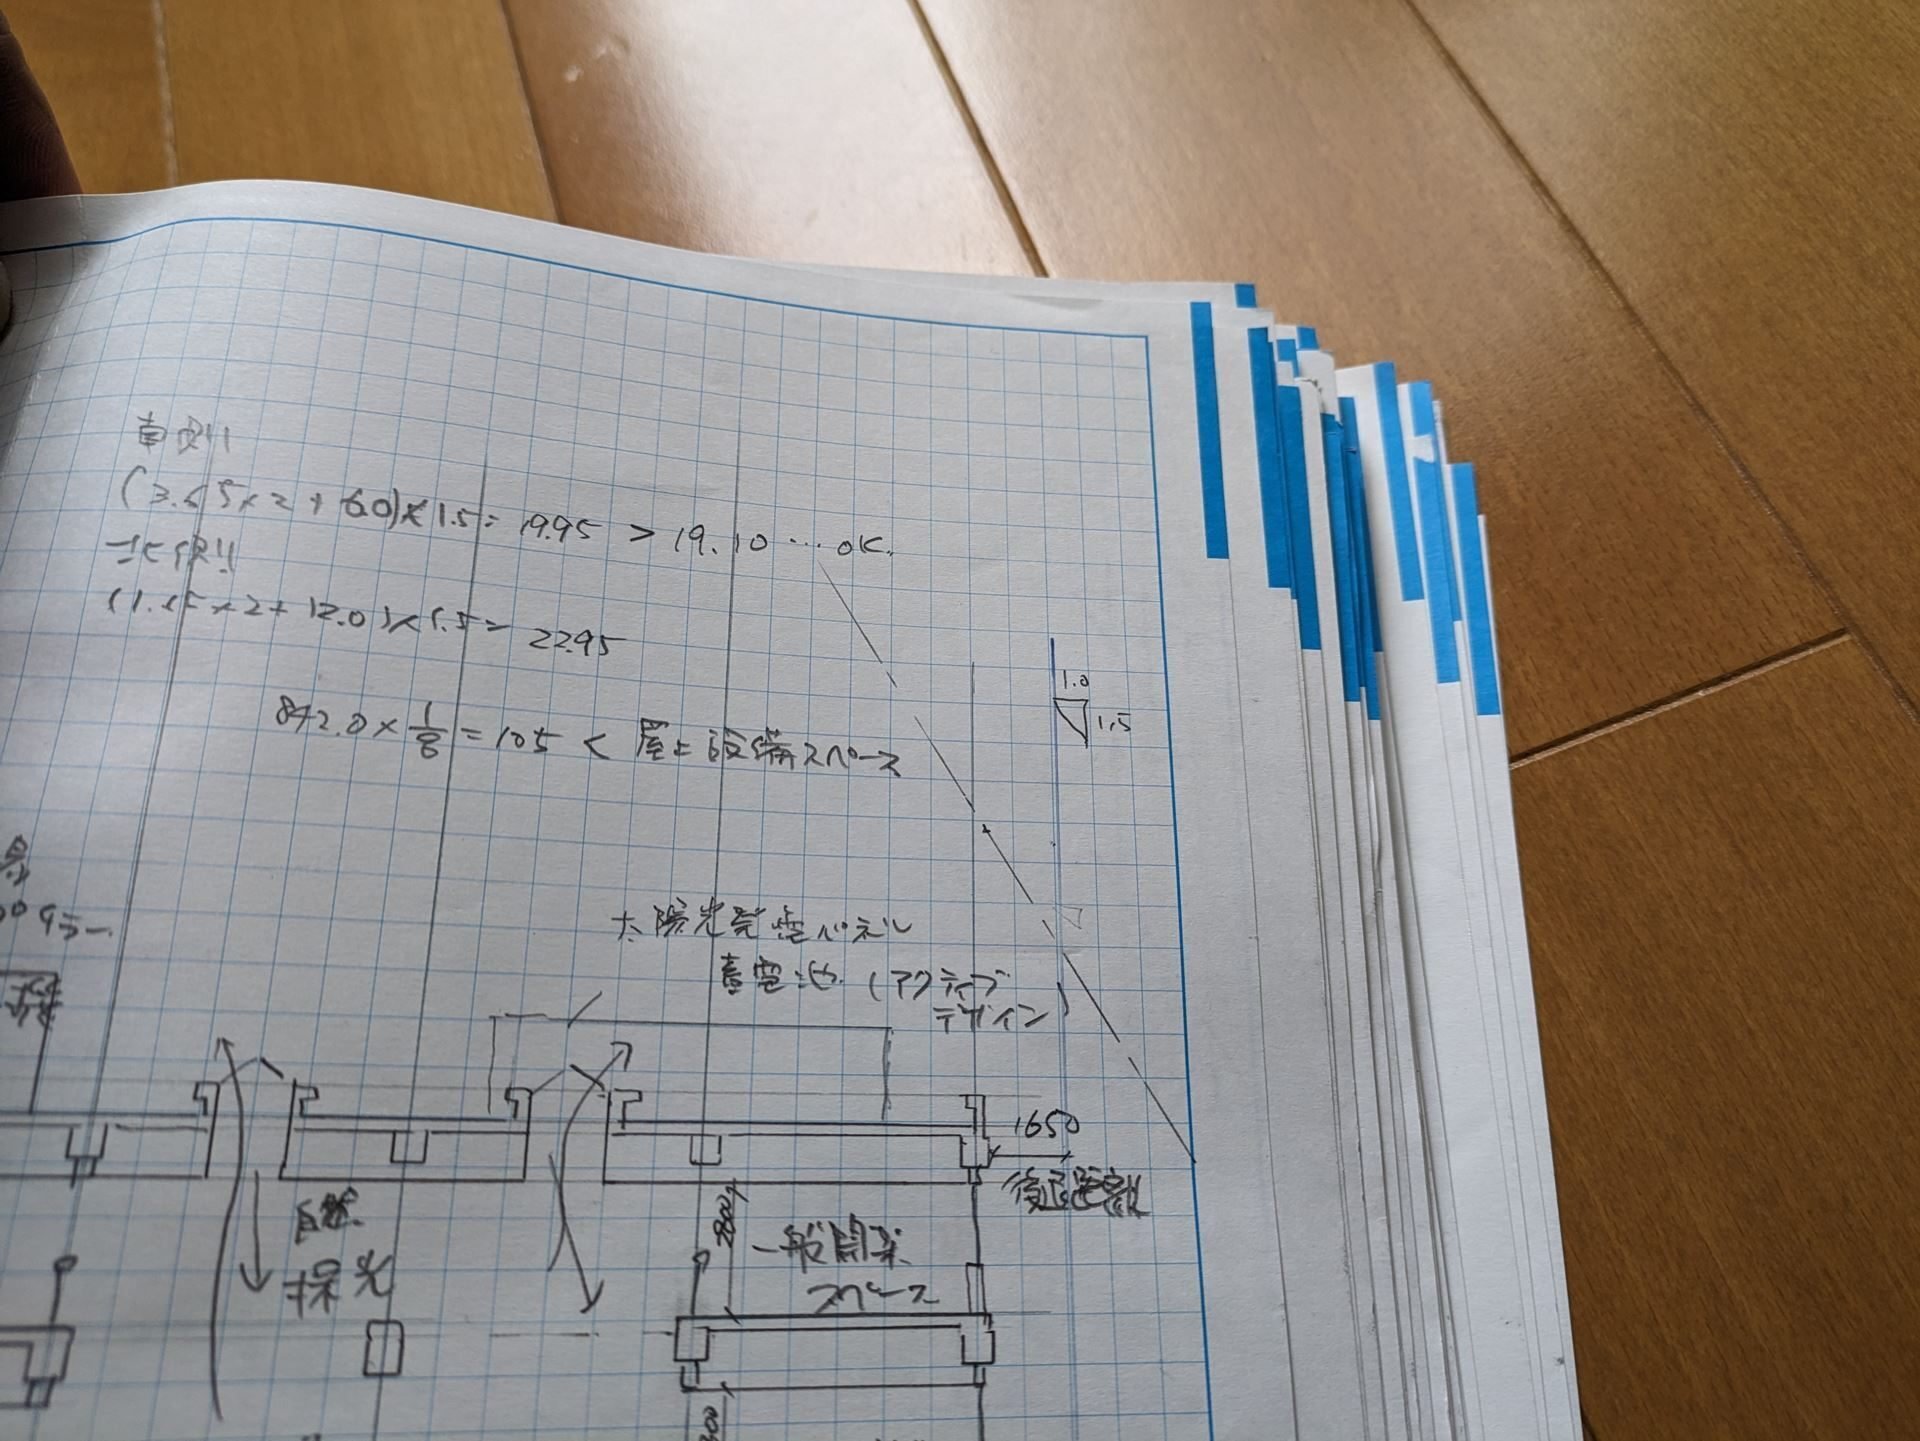 東側
(3.65×2+6.0)×1.5=19.95>19.10…OK.
北側
(1.65×2+12.0)×1.5=22.95
842.0×1/8=105<屋上設備スペース
1.0
1.5
太陽光発電パネル
蓄電池(アクティブ
デザイン)
1650
後退距離
自然
採光
2800
一般開架
スペース